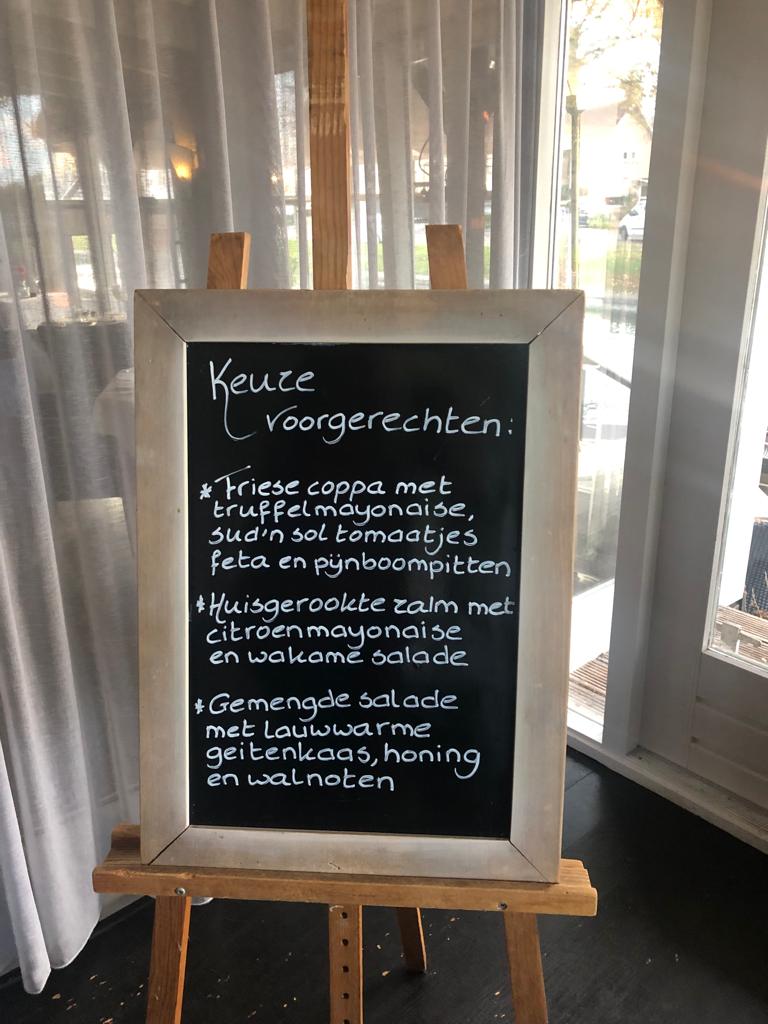 Keuze
voorgerechten:
* Friese coppa met
truffelmayonaise,
sud'n sol tomaatjes
feta en pijnboompitten
* Huisgerookte zalm met
citroenmayonaise
en wakame salade
* Gemengde salade
met lauwwarme
geitenkaas, honing
en walnoten